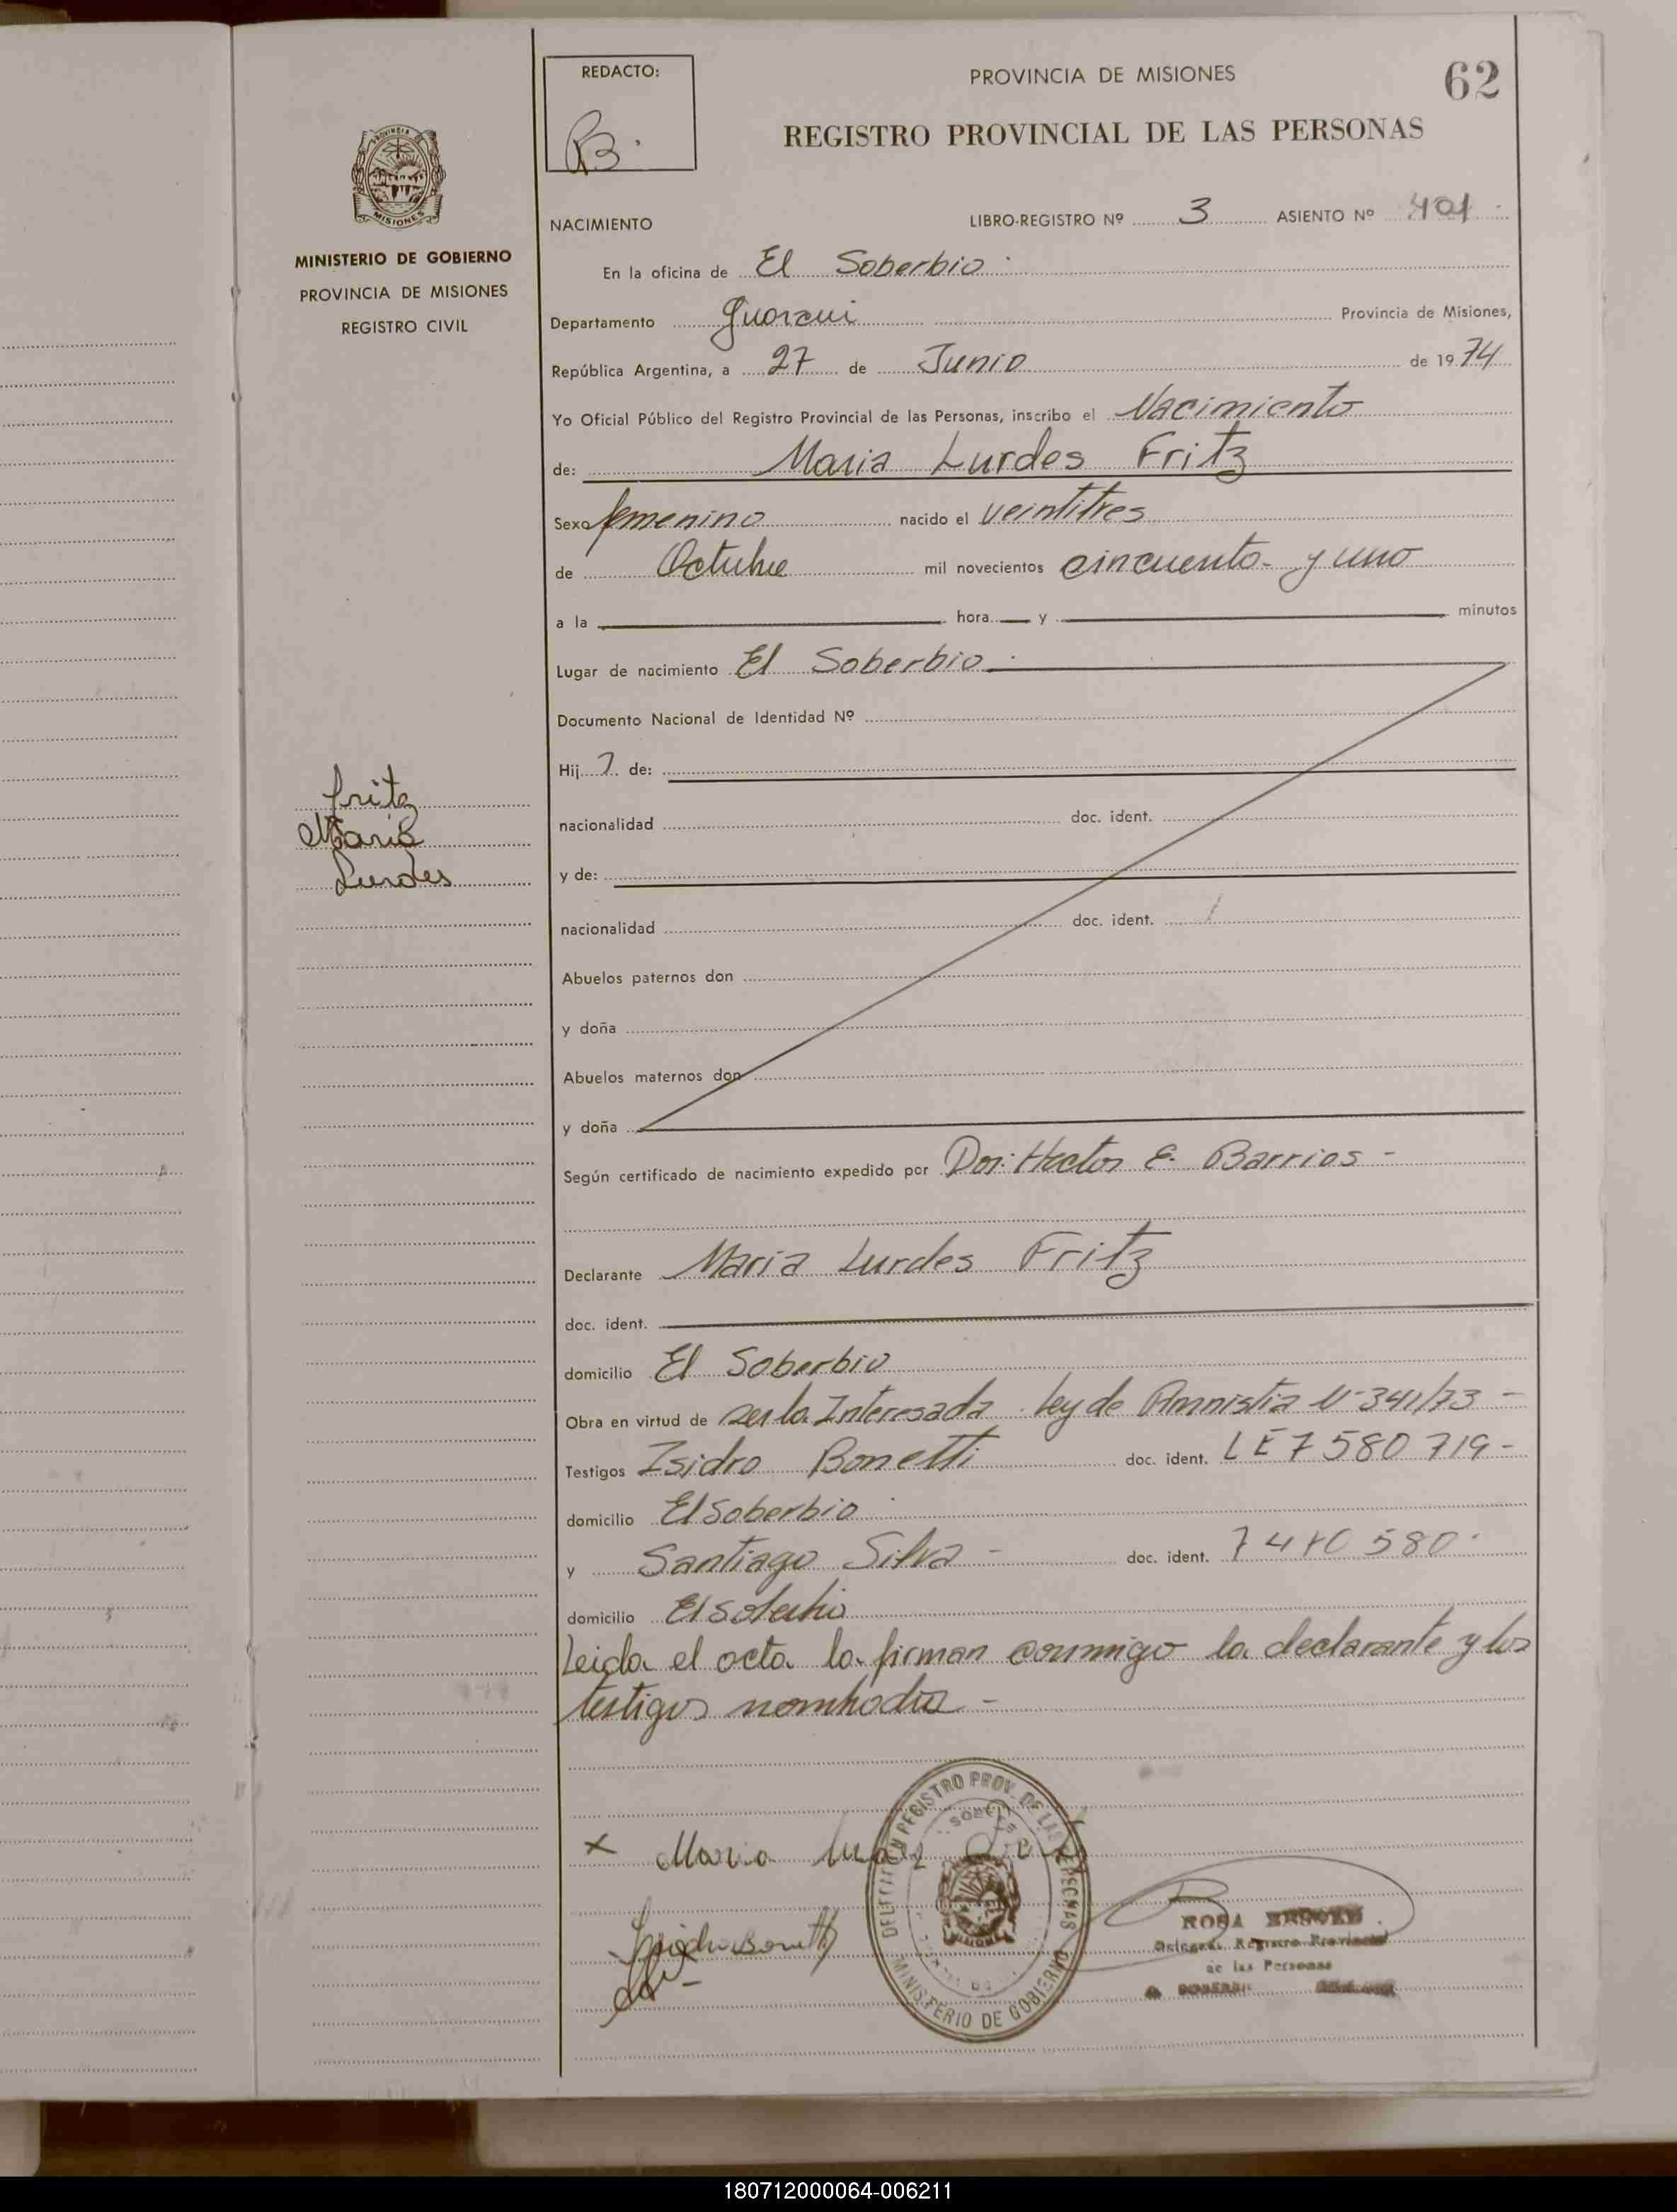 REDACTO:
B.
PROVINCIA DE MISIONES
62
REGISTRO PROVINCIAL DE LAS PERSONAS
PROVINCIA DE
MISIONES
MINISTERIO DE GOBIERNO
PROVINCIA DE MISIONES
REGISTRO CIVIL
NACIMIENTO
LIBRO-REGISTRO Nº 3 ASIENTO Nº 401
En la oficina de El Soberbio
Departamento Guarani Provincia de Misiones,
República Argentina, a 27 de Junio de 1974
Yo Oficial Público del Registro Provincial de las Personas, inscribo el Nacimiento
de: Maria Lurdes Fritz
Sexo femenino nacido el veintitres
de Octubre mil novecientos cincuenta y uno
a la hora y minutos
Lugar de nacimiento El Soberbio
Documento Nacional de Identidad Nº
Hij de:
Fritz
Maria
Lurdes
nacionalidad doc. ident.
y de:
nacionalidad doc. ident.
Abuelos paternos don
y doña
Abuelos maternos don
y doña
Según certificado de nacimiento expedido por Dor: Hector E. Barrios -
Declarante Maria Lurdes Fritz
doc. ident.
domicilio El Soberbio
Obra en virtud de ser la Interesada Ley de Amnistia Nº 341/73 -
Testigos Isidro Bonetti doc. ident. LE 7 580 719 -
domicilio El Soberbio
y Santiago Silva - doc. ident. 7 410 580
domicilio El Soberbio
Leida el acta la firman conmigo la declarante y los
testigos nombrados -
DELEGACION REGISTRO PROV. DE LAS PERSONAS
MINISTERIO DE GOBIERNO
x Maria
Isidro Bonetti
ROSA
Delegada Registro Provincial
de las Personas
180712000064-006211